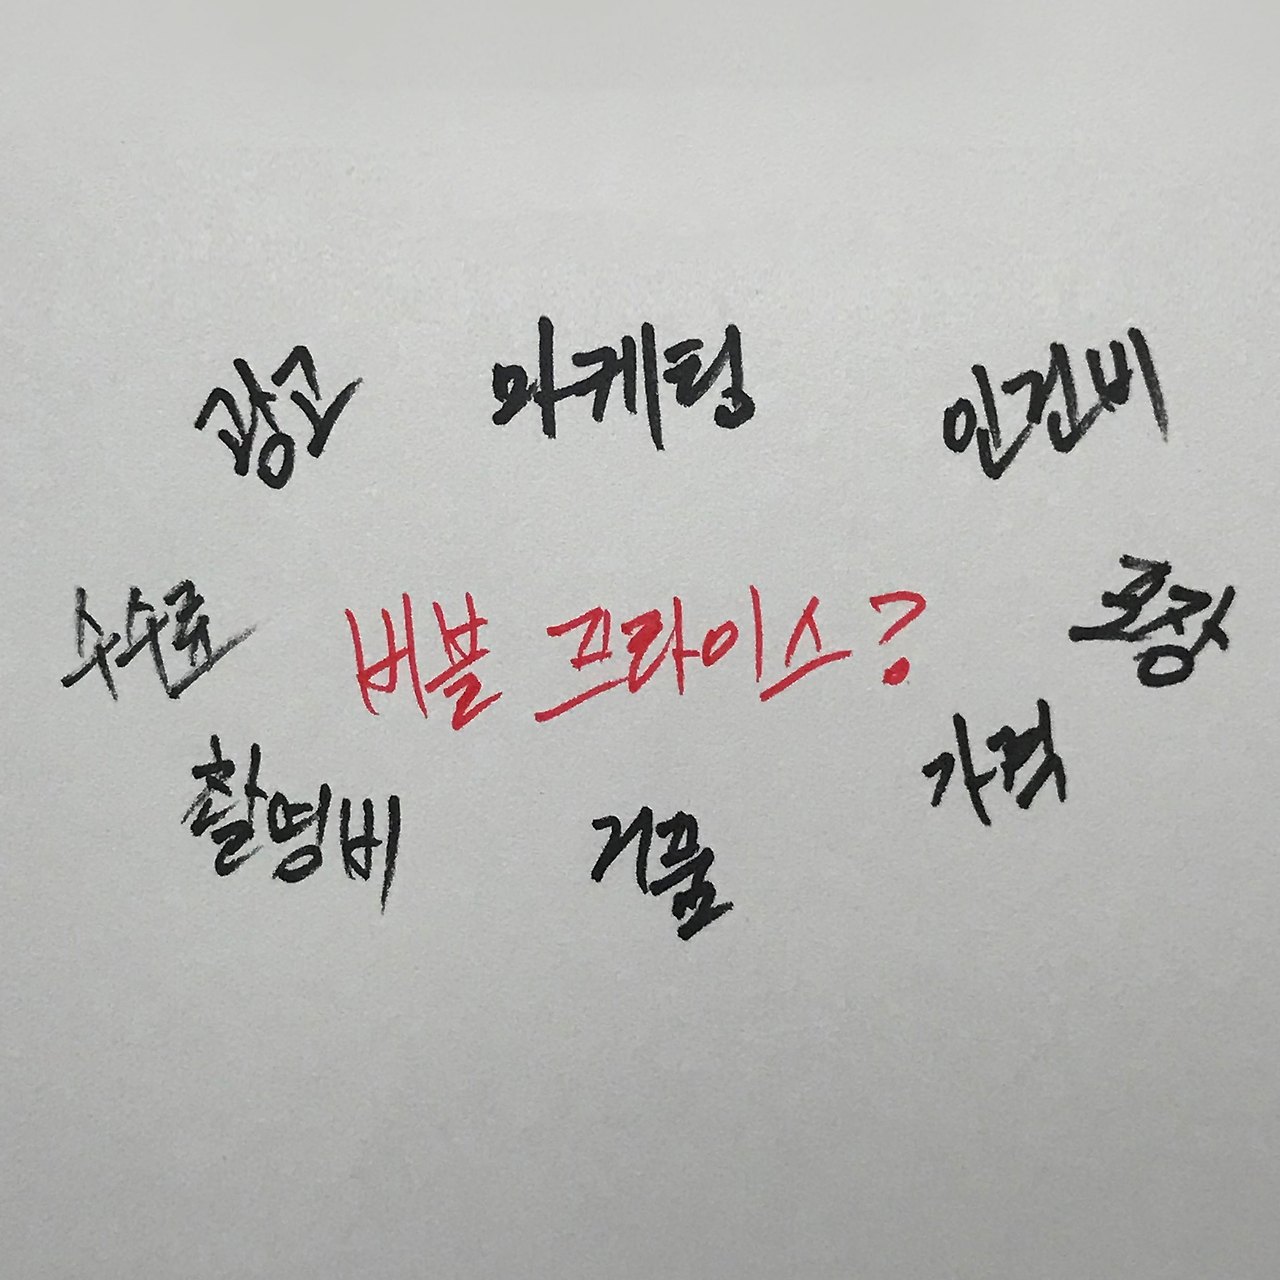 광고
마케팅
인건비
수수료
버블 프라이스?
포장
촬영비
거품
가격